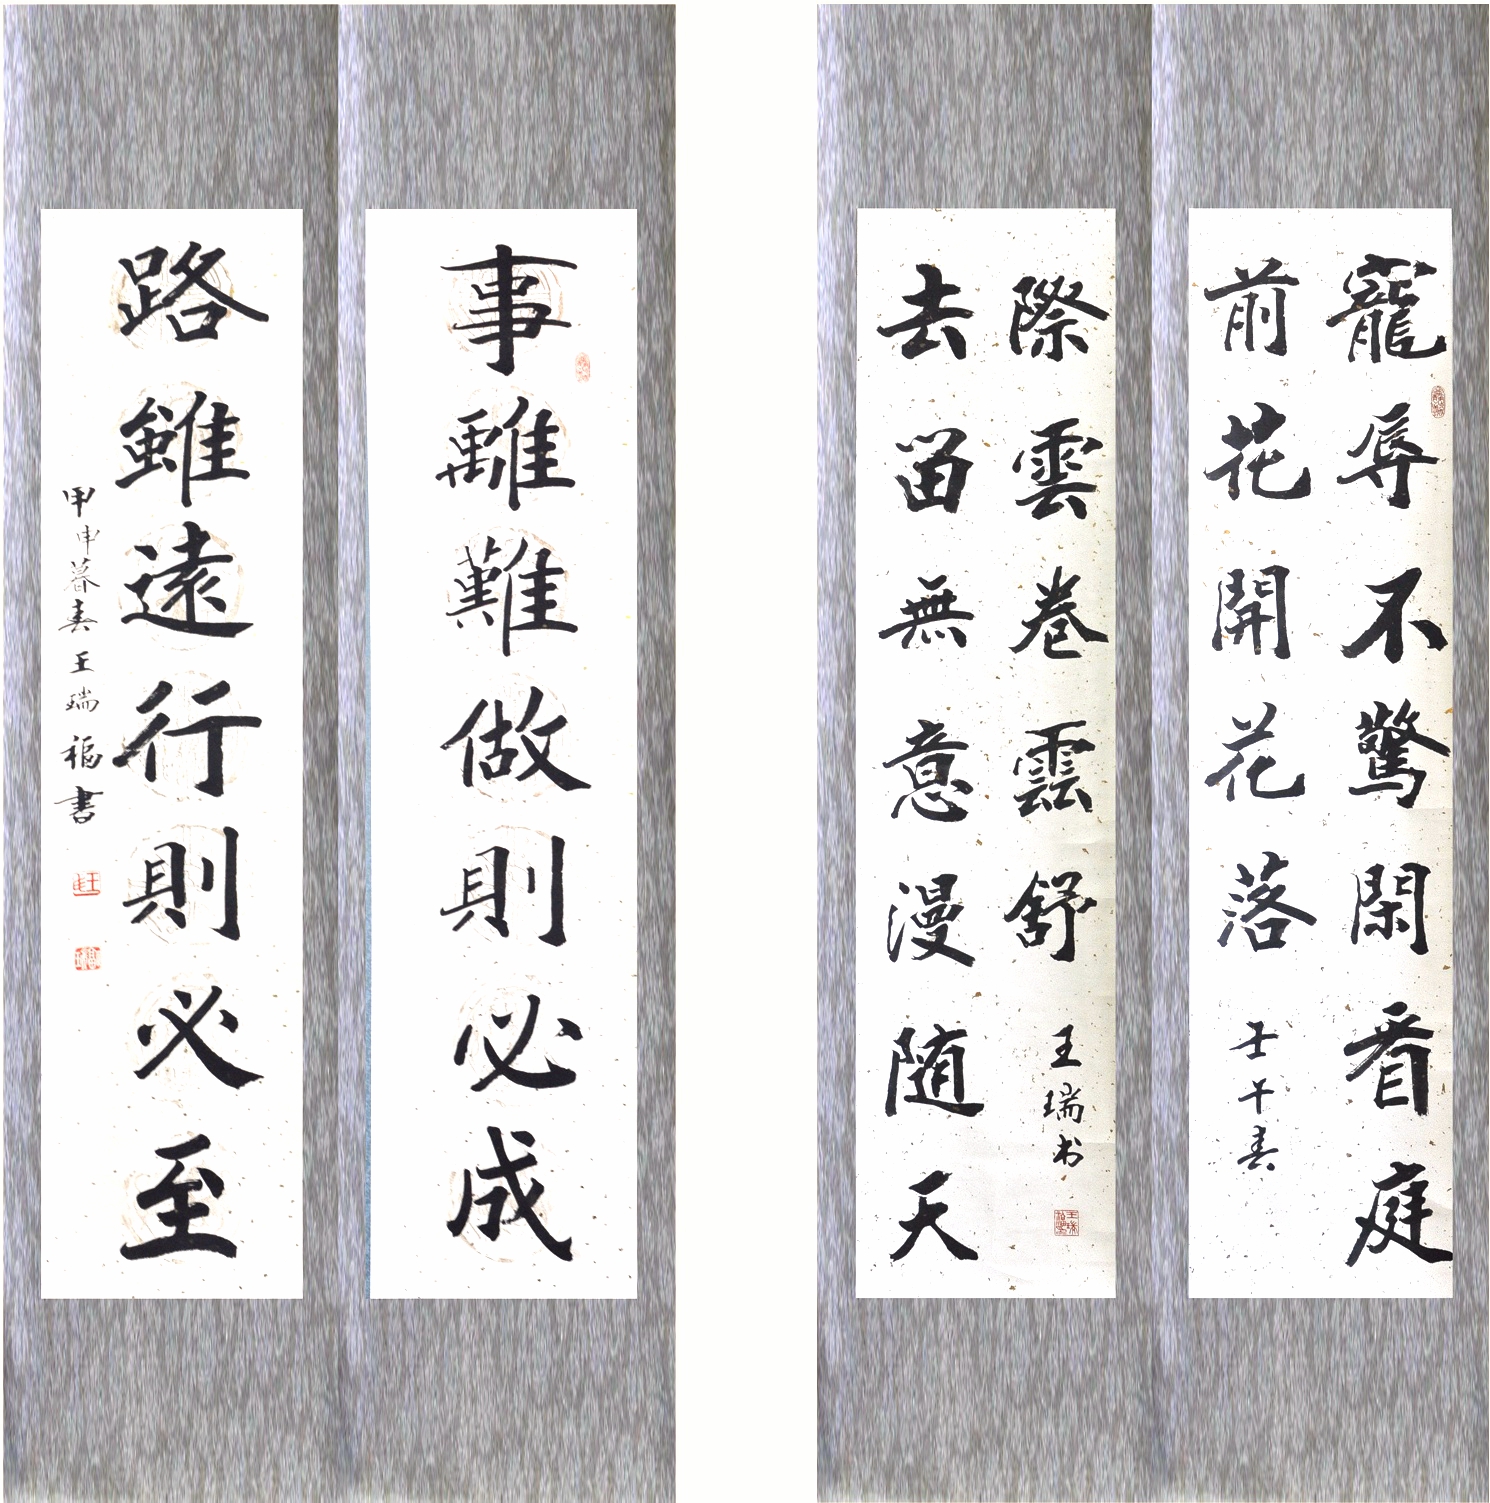 寵辱不驚閑看庭
前花開花落
壬午春
去留無意漫随天
際雲卷雲舒
王瑞书
事雖難做則必成
路雖遠行則必至
甲申暮春王瑞福書